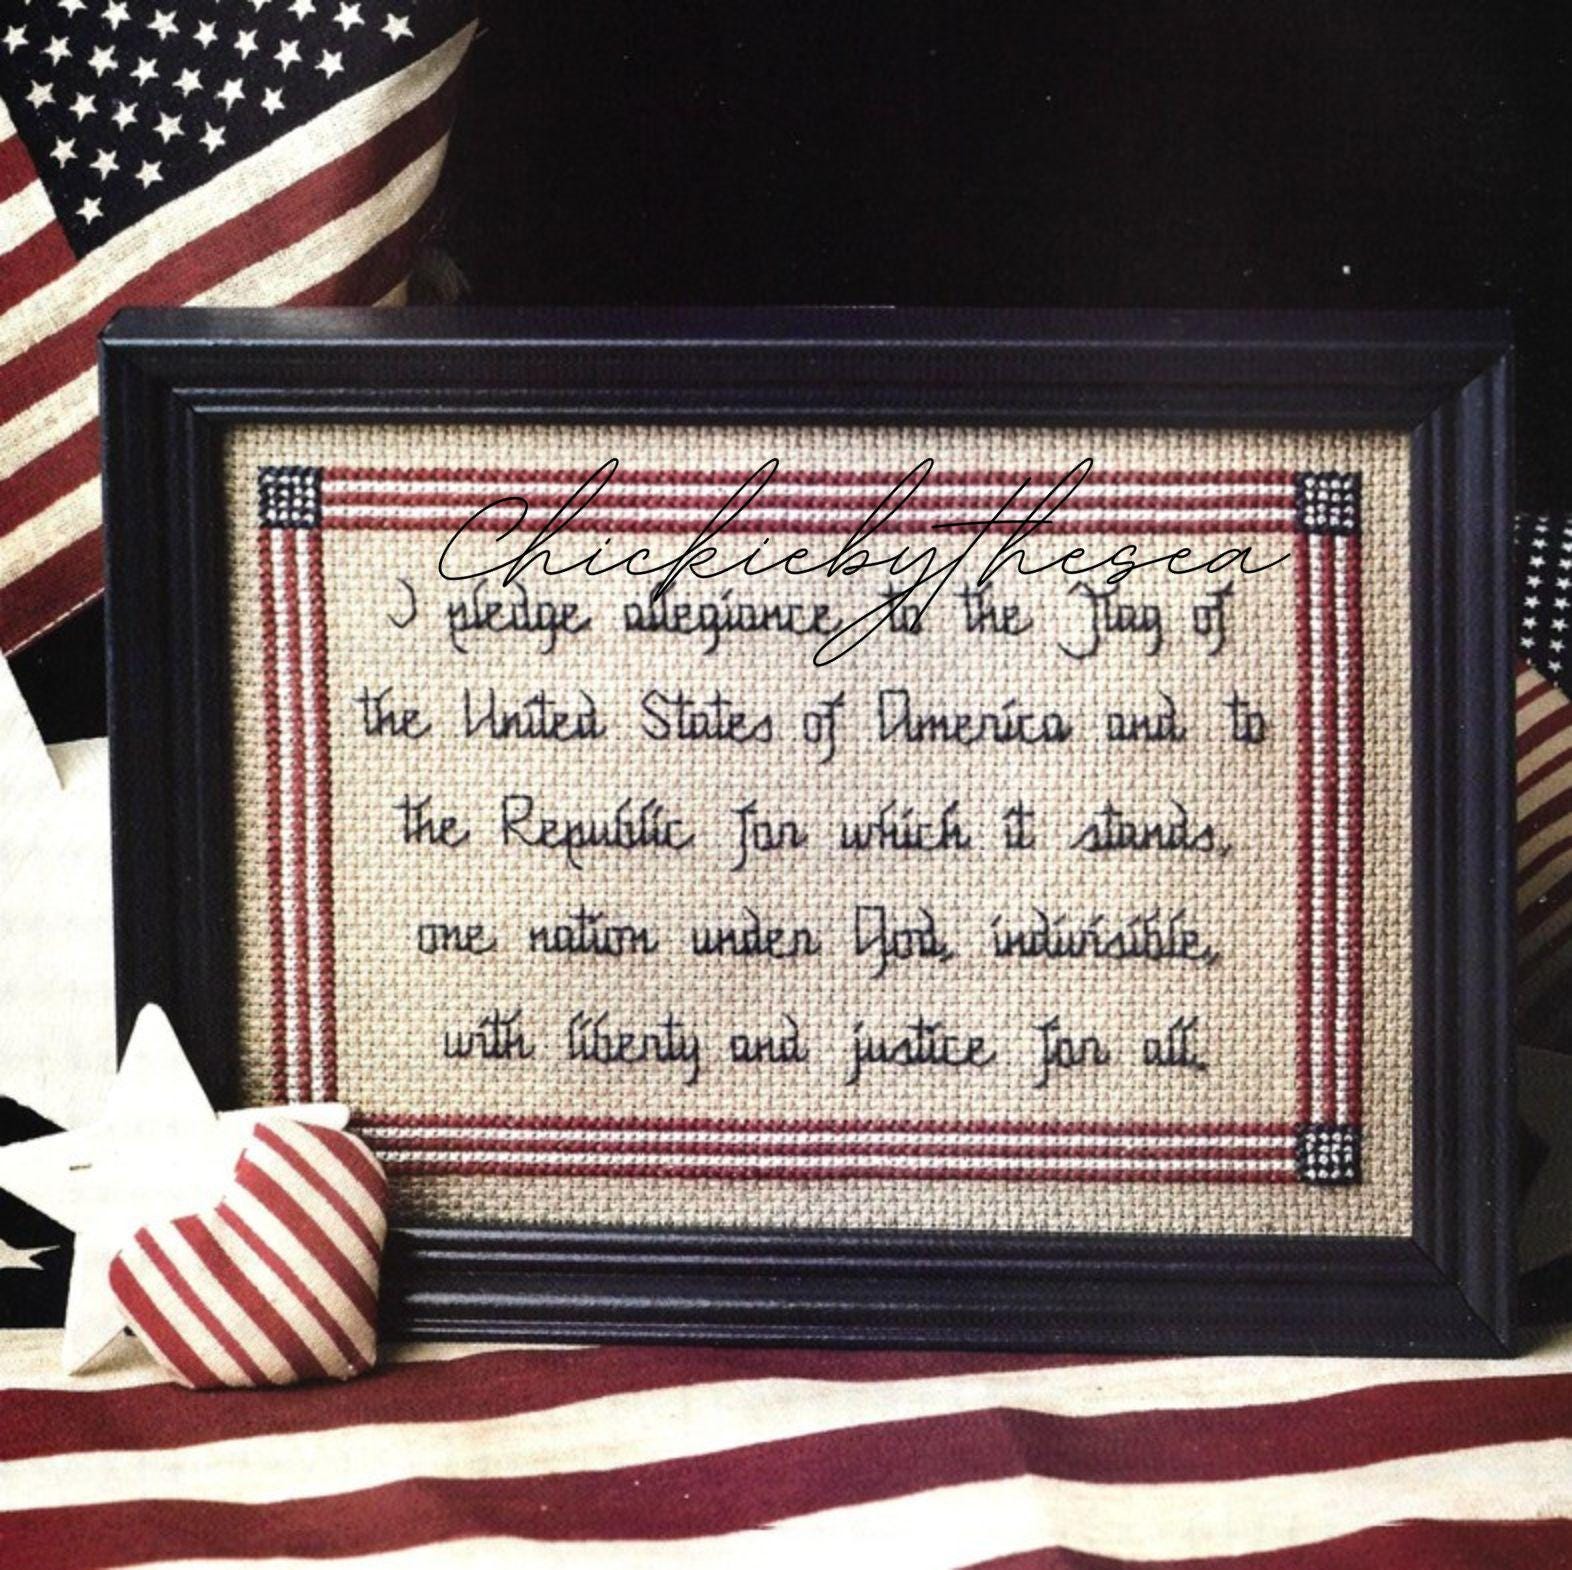 Chickiebythesea
I pledge allegiance to the Flag of
the United States of America and to
the Republic for which it stands,
one nation under God, indivisible,
with liberty and justice for all.